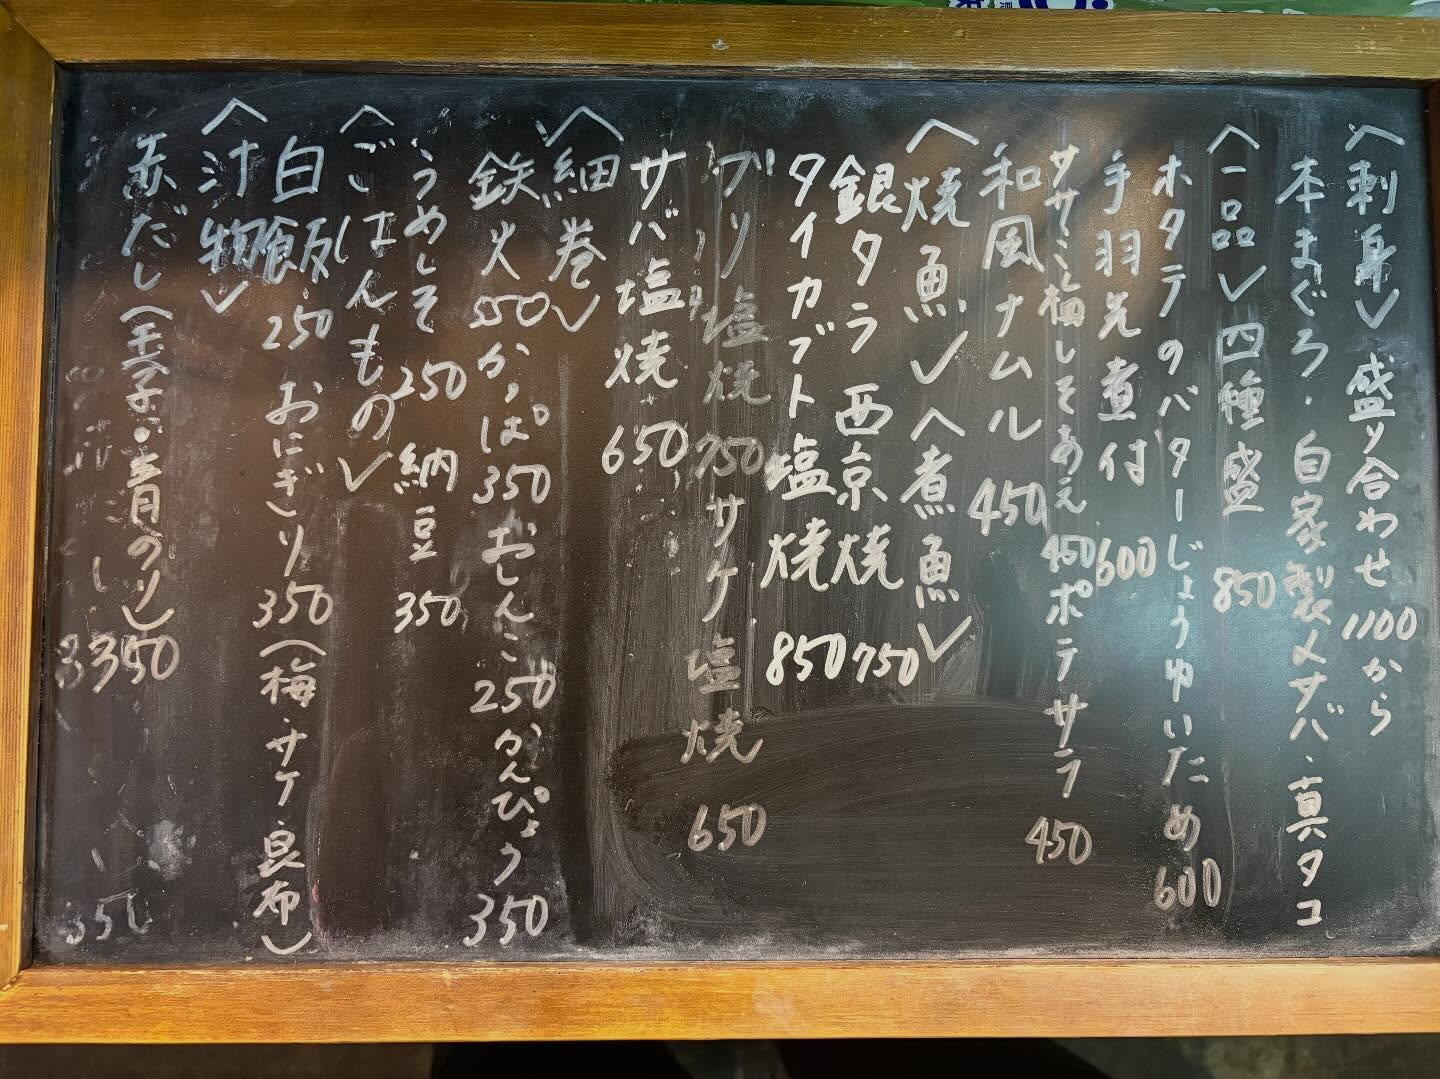 〈刺身〉盛り合わせ1100から
本まぐろ・自家製〆サバ・真タコ
〈一品〉四種盛 850
ホタテのバターじょうゆいため 600
手羽先煮付 600
ササミ梅しそあえ 450 ポテサラ 450
和風ナムル 450
〈焼魚〉〈煮魚〉
銀タラ西京焼 750
タイカブト塩焼 850
ブリ塩焼 750 サケ塩焼 650
サバ塩焼 650
〈細巻〉
鉄火 550 かっぱ 350 おしんこ 250 かんぴょう 350
うめしそ 250 納豆 350
〈ごはんもの〉
白飯 250 おにぎり 350(梅・サケ・昆布)
〈汁物〉
赤だし(玉子・青のり) 350
350